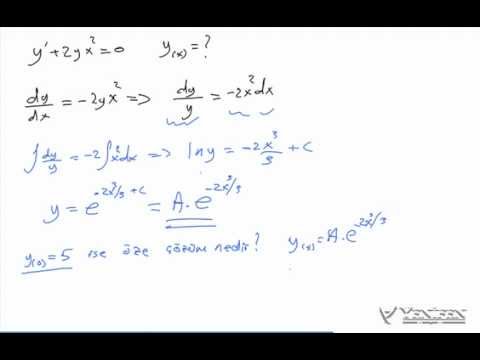 y' + 2yx² = 0    y(x) = ?
dy/dx = -2yx² => dy/y = -2x²dx
∫dy/y = -2∫x²dx => ln y = -2x³/3 + c
y = e^(-2x³/3 + c) = A.e^(-2x³/3)
y(0) = 5 ise özel çözüm nedir?    y(x) = A.e^(-2x³/3)